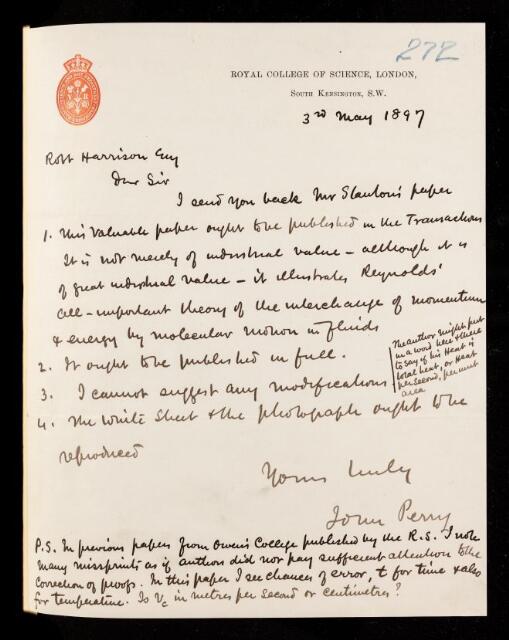 272
ROYAL COLLEGE OF SCIENCE, LONDON,
SOUTH KENSINGTON, S.W.
3rd May 1897
Robt Harrison Esq
Dear Sir
I send you back Mr Stanton's paper
1. This valuable paper ought to be published in the Transactions
It is not merely of industrial value – although it is
of great industrial value – it illustrates Reynolds'
all-important theory of the interchange of momentum
& energy by molecular motion in fluids
2. It ought to be published in full.
3. I cannot suggest any modifications
The author might put
in a word here & there
to say if his Heat is
total heat, or Heat
per second, per unit
area
4. The white sheet & the photograph ought to be
reproduced
Yours truly
John Perry
P.S. In previous papers from Owens College published by the R.S. I note
many misprints as if authors did not pay sufficient attention to the
correction of proofs. In this paper I see chances of error, t for time & also
for temperature. Is Vc in metres per second or centimetres?